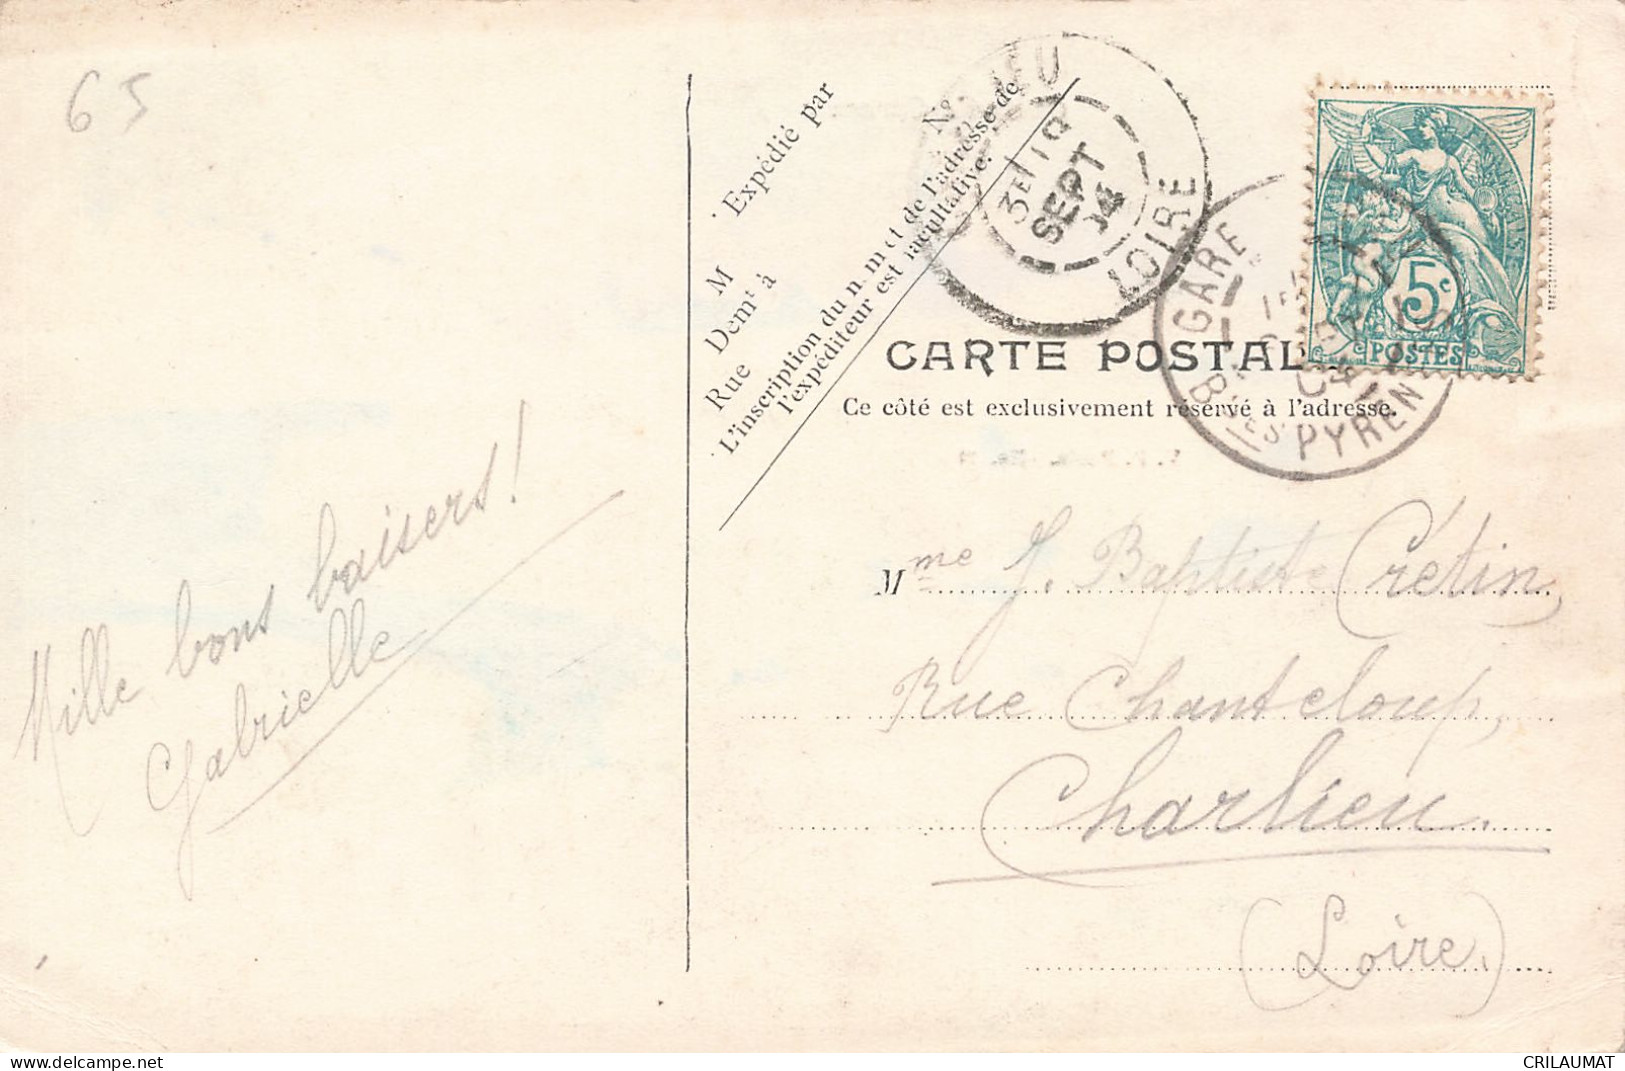 65
Expédié par
M
Demt à
Rue
No
L'inscription du n. m et de l'adresse de
l'expéditeur est facultative.
3E 18
SEPT
04
LOIRE
GARE
Bses PYREN
5c
POSTES
CARTE POSTAL
Ce côté est exclusivement réservé à l'adresse.
Mille bons baisers !
Gabrielle
Mme J. Baptiste Crétin,
Rue Chanteloup,
Charlieu.
(Loire.)
www.delcampe.net
CRILAUMAT